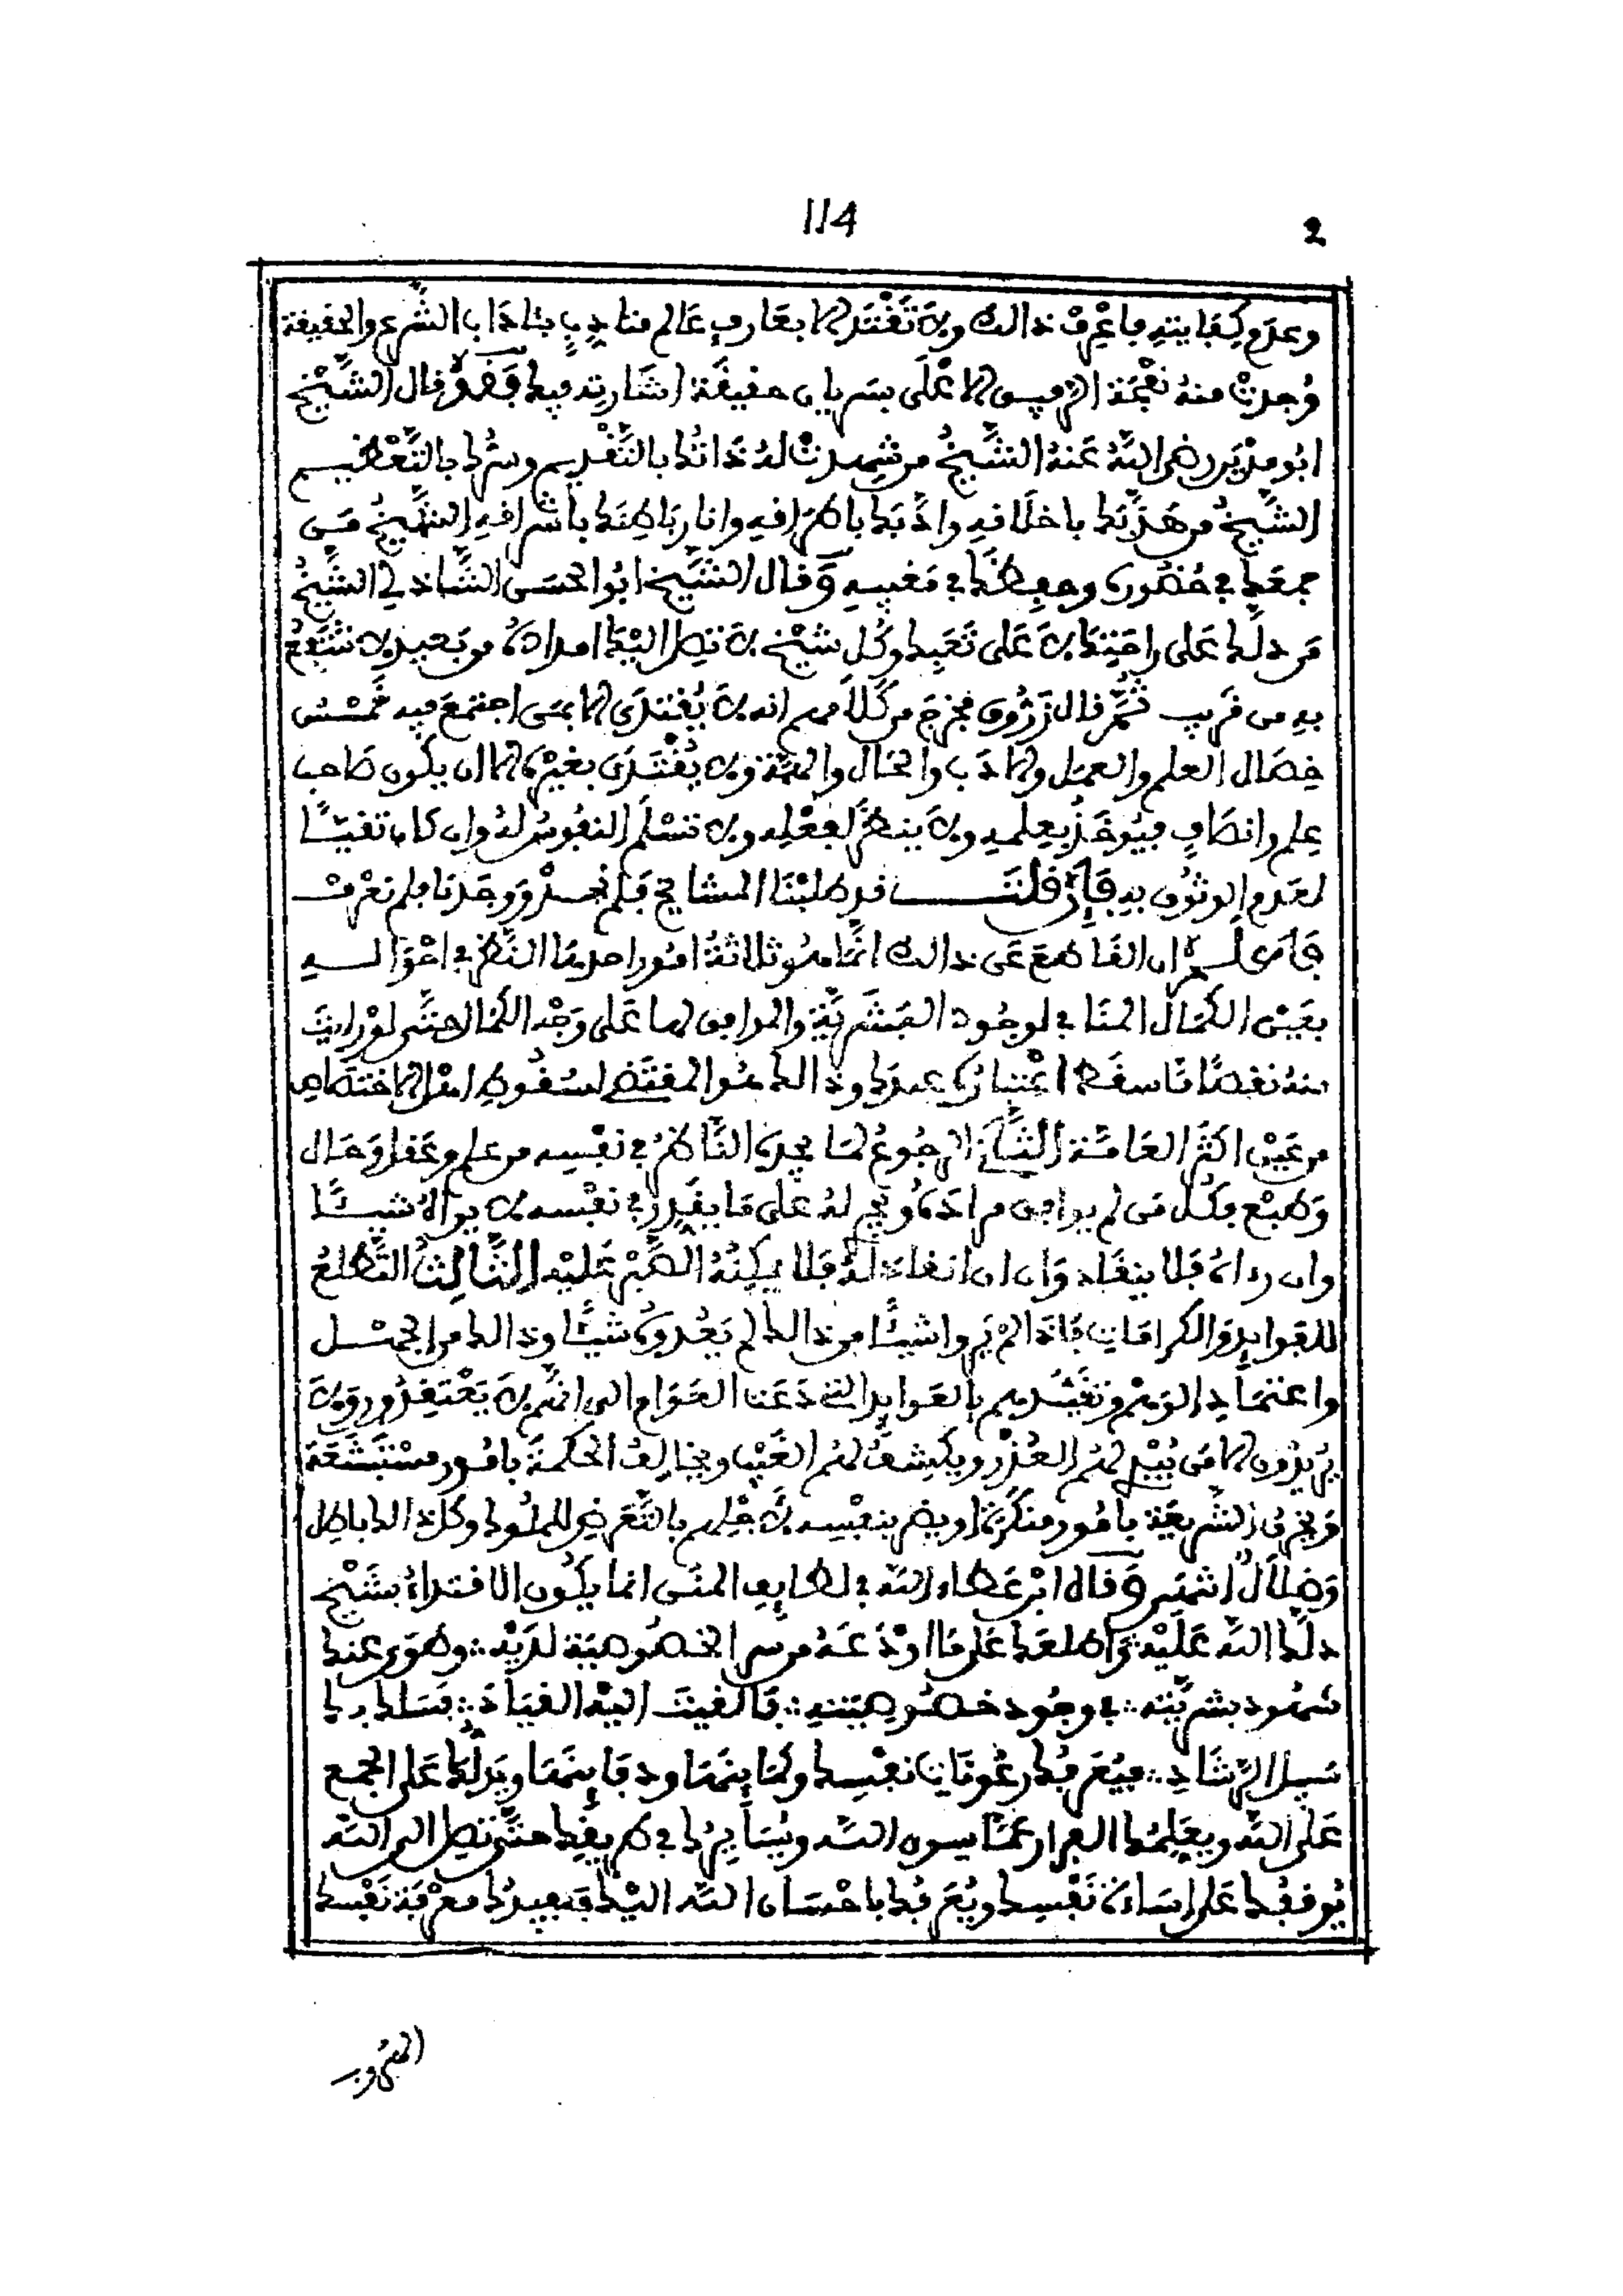 114
2
وعدم كفايته فاعرف ذالك ولا تقتد إلا بعارف عالم متأدب بآداب الشرع والحقيقة
وجدت منه نعمة الرفيق الاعلى بسريان حقيقة إشارته فيك فقد قال الشيخ
ابو مدين رضي الله عنه الشيخ من شهدت له ذاتك بالتقديم وسرك بالتعظيم
الشيخ من هذبك باخلافه وأدبك باطرافه وانار باطنك باشرافه الشيخ من
جمعك في حضوره وحفظك في مغيبه وقال الشيخ ابوا الحسن الشاذلي الشيخ
من دلك على راحتك لا على تعبك وكل شيخ لا تصل إليك امداداته من بعيد لا تنتفع
به من قريب ثم قال زروق فخرج من كلامهم انه لا يقتدى إلا بمن اجتمع فيه خمس
خصال العلم والعمل والادب والحال والهمة ولا يقتدى بغيره إلا ان يكون صاحب
علم وانصاف فيوخذ بعلمه ولا ينظر لفعله ولا تسلم النفوس له وان كان تقيا
لعدم الوثوق به فإن قلت قد طلبنا المشايخ فلم نجد ووجدنا فلم نعرف
فاعلم ان القاطع عن ذالك انما هو ثلاثة امور احدها النظر في احواله
بعين الكمال المنافي لوجود البشرية والمرافق لها على وجه الكمال حتى لو رايت
منه نقصا ما سقط اعتباره عندك وذالك هو المقتضي لسقوط اهل الاختصاص
من عين اكثر العامة الثاني الرجوع لما يجده الناظر في نفسه من علم وعقل وحال
وطبع فكل من لم يوافق مراده ويجر له على ما يقدر في نفسه لا يراه شيئا
وان رداه فلا ينقاد وان ان انقاد له فلا يمكنه الصبر عليه الثالث التطلع
للفوايد والكرامات فاذا لم يروا شيئا من ذالك لم يعدوه شيئا وذالك من الجهل
واعتماد الوهم وتقيدهم بالعوايد التي دعت العوام الى انهم لا يعتقدون ولا
يريدون إلا من يبين لهم العذر ويكشف لهم الغيب ويخالف الحكمة بامور مستبشعة
ويخرق الشريعة بامور منكرة او يضر بنفسه لاجلهم بالتعرض للملوك وكل ذالك باطل
وضلال اشتهر وقال ابن عطاء الله في لطايف المنن انما يكون الاقتداء بشيخ
دلك الله عليه واطلعك على ما اودعه من سر الخصوصية لديه وطوى عنك
شهود بشريته في وجود خصوصيته فالقيت اليه القياد فسلك بك
سبيل الرشاد فيعرفك رعونات نفسك وكماينها ودقاينها ويدلك على الجمع
على الله ويعلمك الفرار عما سوى الله ويسايرك في طريقك حتى تصل الى الله
يوقفك على إساءة نفسك ويعرفك باحسان الله اليك فيفيدك معرفة نفسك
الهروب